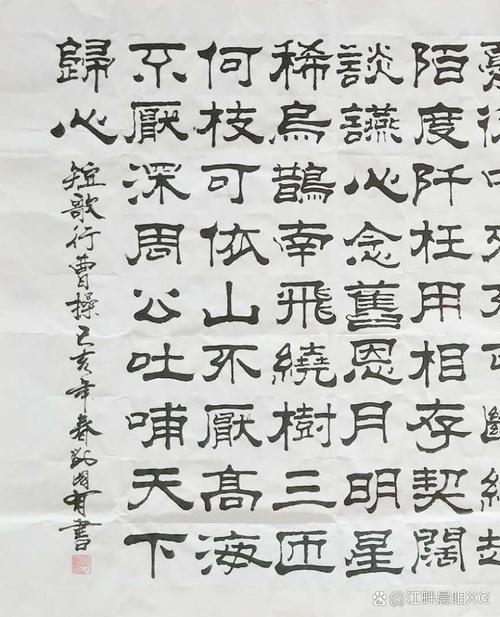 陌度阡枉用相存契闊
談讌心念舊恩月明星
稀烏鵲南飛繞樹三匝
何枝可依山不厭高海
不厭深周公吐哺天下
歸心
短歌行曹操己亥年春書
@江畔晨阳XG